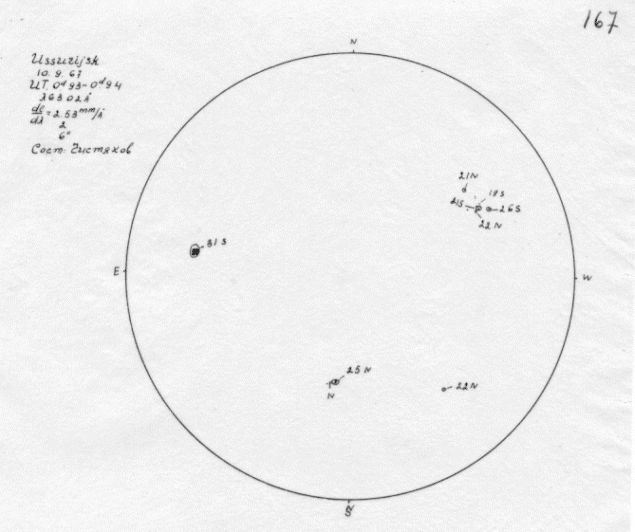 167
Ussurijsk
10. 9. 67
UT. 0ᵈ93-0ᵈ94
λ6302Å
dl/dλ = 2.53 mm/Å
2
6"
Сост. Чистяков
N
21N
17S
21S
26S
22N
31S
E
W
25N
N
22N
S